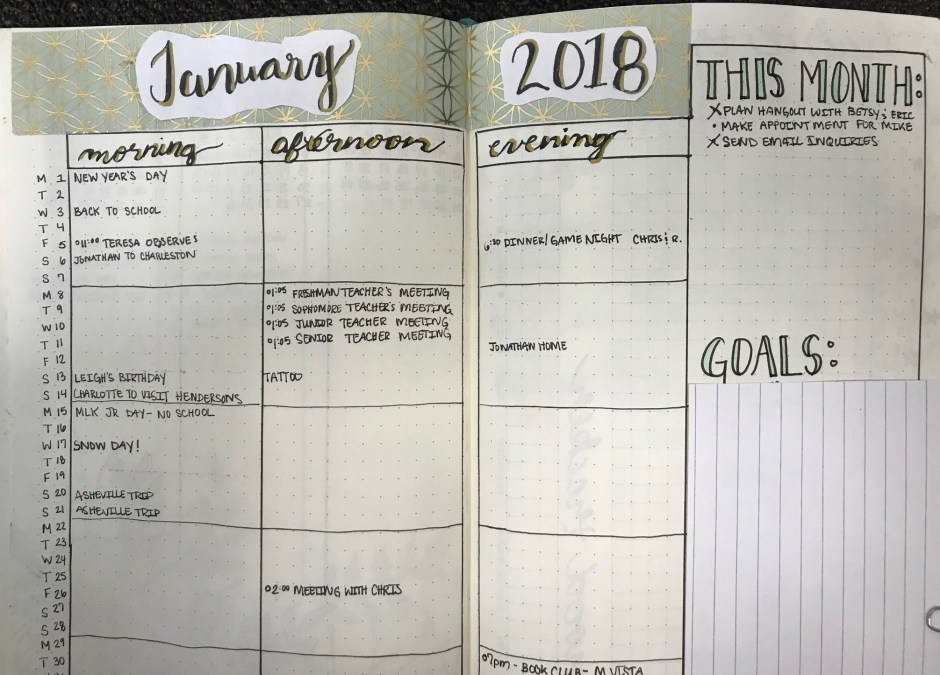 January 2018
morning afternoon evening
M 1 NEW YEAR'S DAY
T 2
W 3 BACK TO SCHOOL
T 4
F 5 11:00 TERESA OBSERVE 6:30 DINNER/GAME NIGHT CHRIS & R.
S 6 JONATHAN TO CHARLESTON
S 7
M 8 01:05 FRESHMAN TEACHER'S MEETING
T 9 01:05 SOPHOMORE TEACHER'S MEETING
W 10 01:05 JUNIOR TEACHER MEETING
T 11 01:05 SENIOR TEACHER MEETING JONATHAN HOME
F 12
S 13 LEIGH'S BIRTHDAY TATTOO
S 14 CHARLOTTE TO VISIT HENDERSONS
M 15 MLK JR DAY - NO SCHOOL
T 16
W 17 SNOW DAY!
T 18
F 19
S 20 ASHEVILLE TRIP
S 21 ASHEVILLE TRIP
M 22
T 23
W 24
T 25
F 26 02:00 MEETING WITH CHRIS
S 27
S 28
M 29
T 30 07pm - BOOK CLUB - M VISTA
THIS MONTH:
X PLAN HANGOUT WITH BETSY & ERIC
• MAKE APPOINTMENT FOR MIKE
X SEND EMAIL INQUIRIES
GOALS: